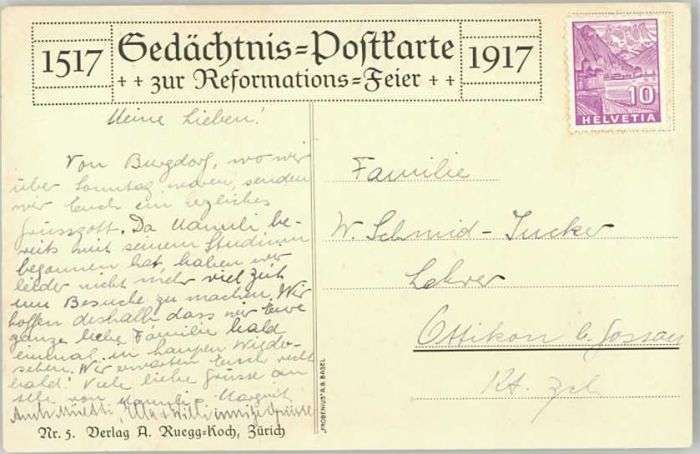 1517 Gedächtnis=Postkarte 1917
++ zur Reformations=Feier ++
10
HELVETIA
Meine Lieben!
Von Burgdorf, wo wir
über Sonntag waren, senden
wir Euch ein herzliches
Grüssgott. Da Hanneli be-
reits mit seinem Studium
begonnen hat, haben wir
leider nicht mehr viel Zeit
um Besuche zu machen. Wir
hoffen deshalb dass wir Eure
ganze liebe Familie bald
einmal in haupen Wieder-
sehen. Wir erwarten Euch recht
bald! Viele liebe Grüsse an
alle von
Familie
W. Schmid-
Lehrer
Ottikon b. Gossau
Kt. Zch
"FROBENIUS" A.G. BASEL
Nr. 5. Verlag A. Ruegg=Koch, Zürich